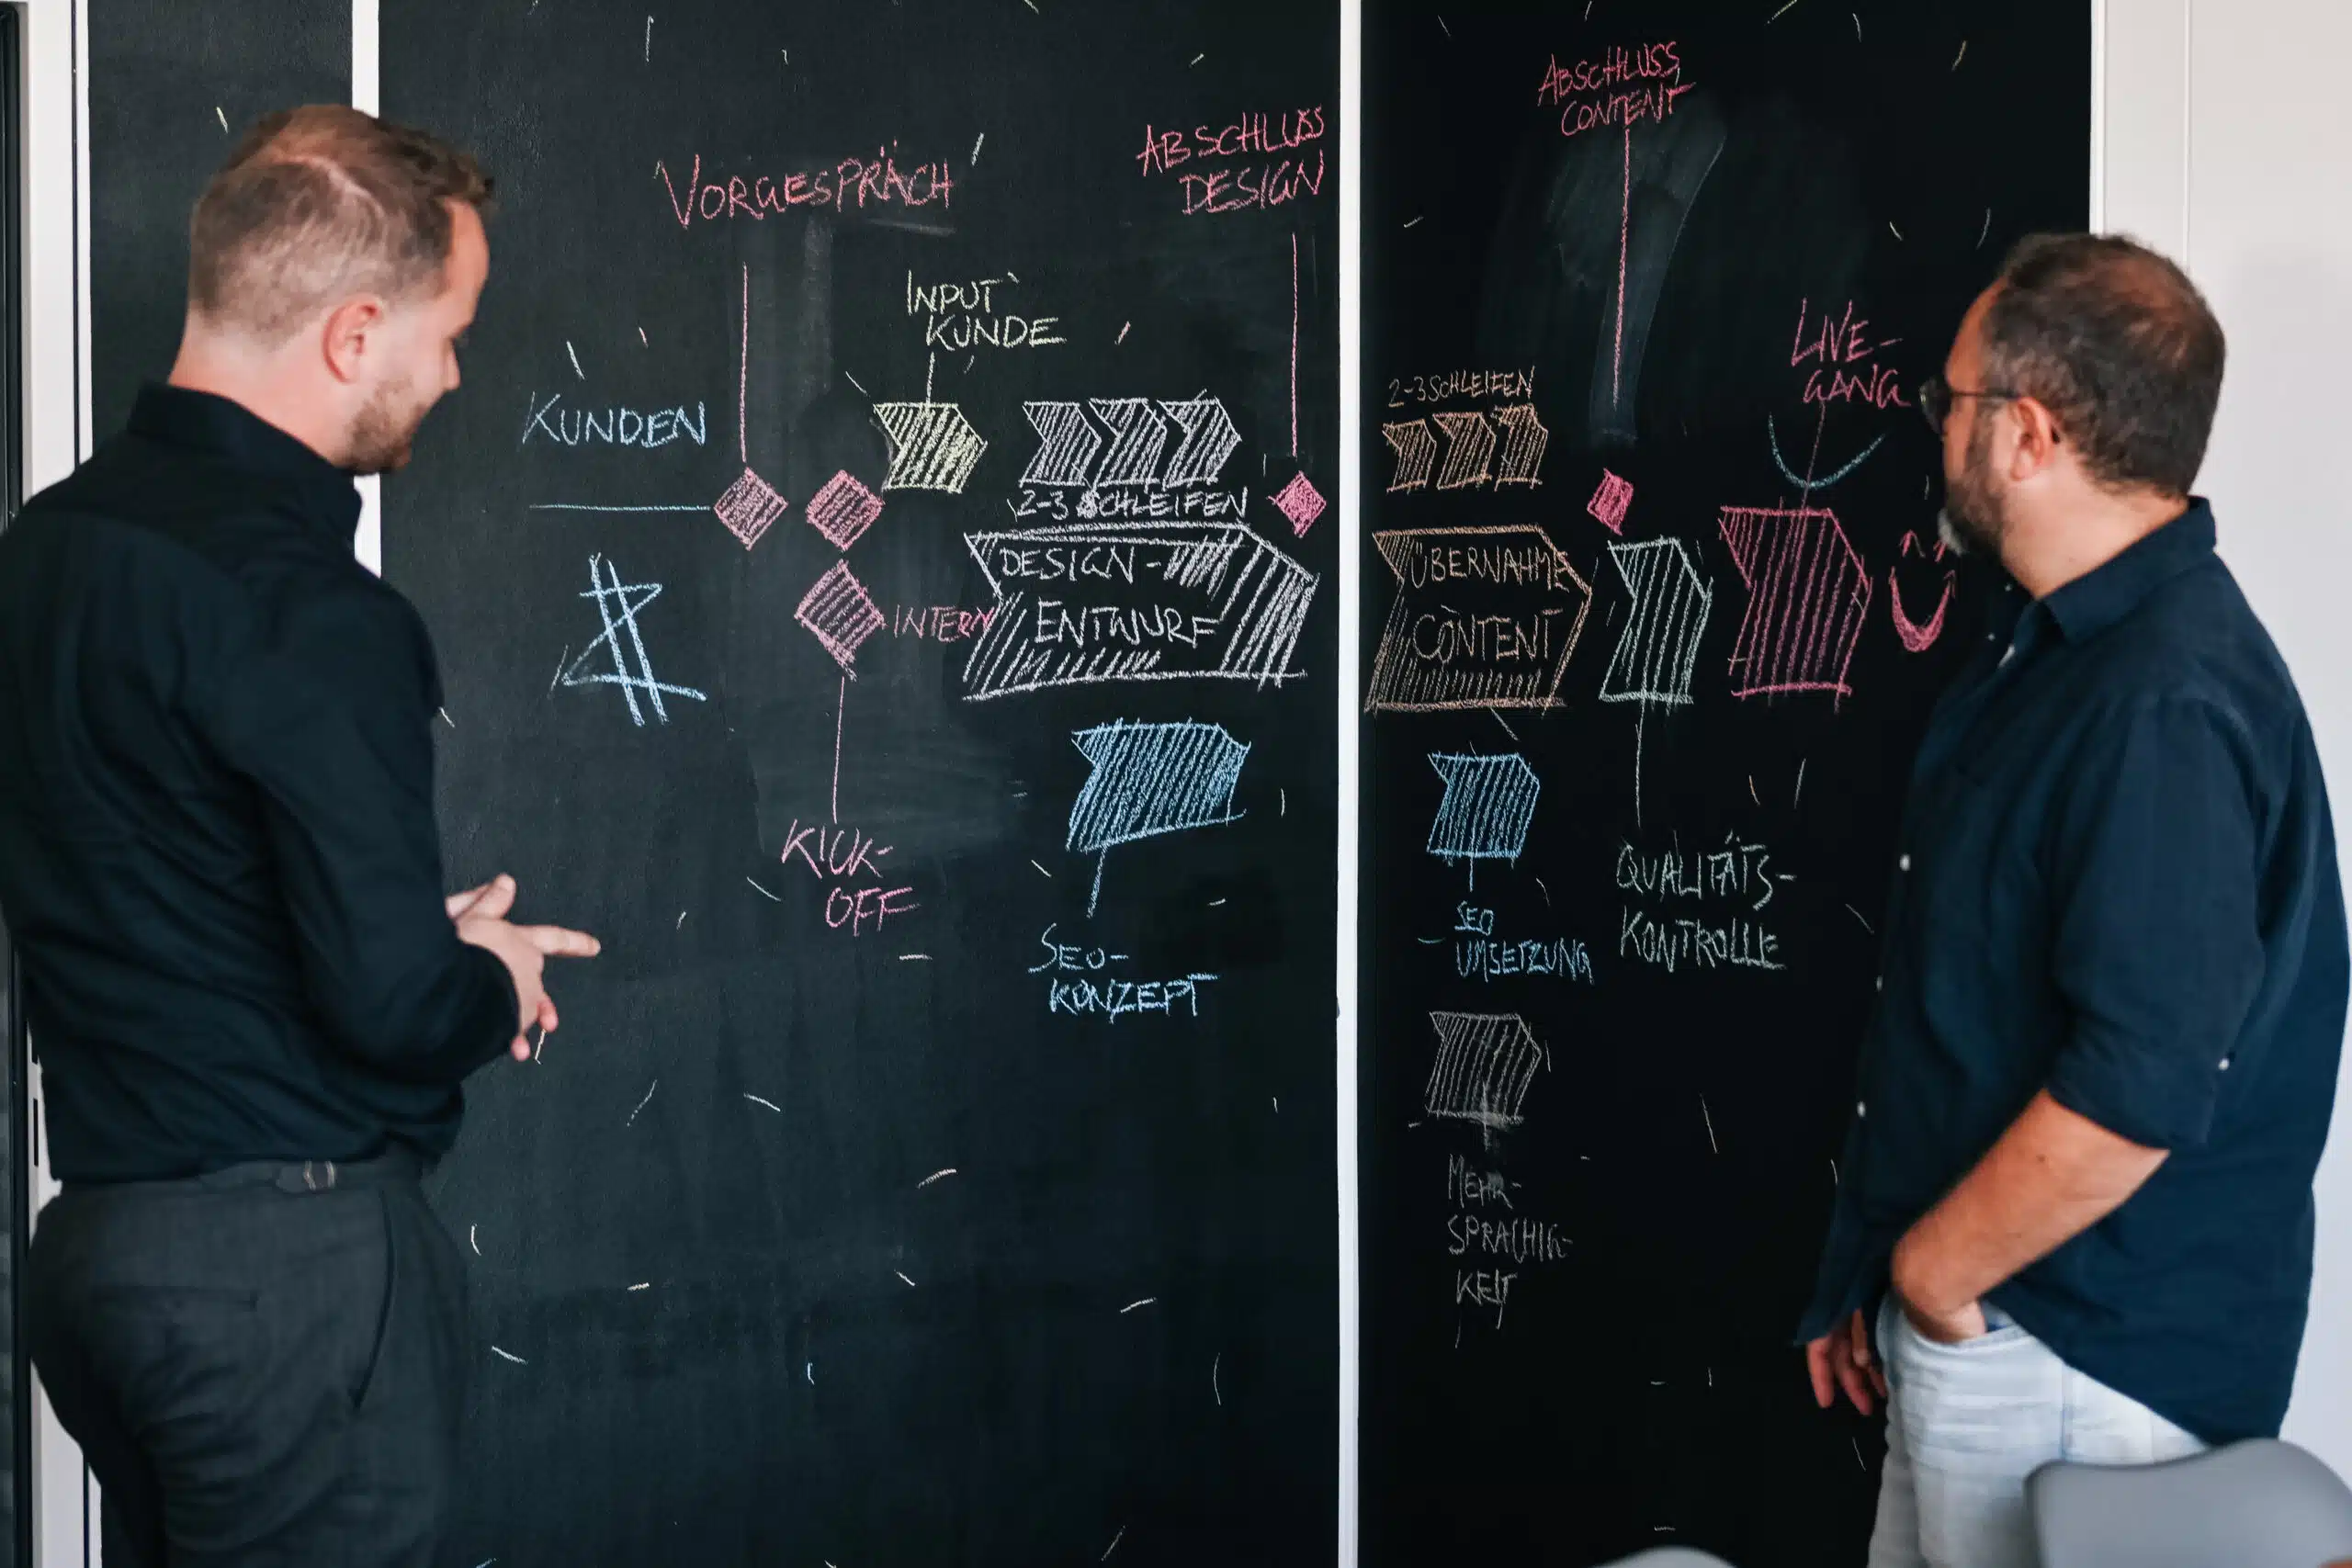 VORGESPRÄCH
ABSCHLUSS
DESIGN
INPUT
KUNDE
KUNDEN
2-3 SCHLEIFEN
INTERN
DESIGN-
ENTWURF
KICK-
OFF
SEO-
KONZEPT
ABSCHLUSS
CONTENT
LIVE-
GANG
2-3 SCHLEIFEN
ÜBERNAHME
CONTENT
SEO
UMSETZUNG
QUALITÄTS-
KONTROLLE
MEHR-
SPRACHIG-
KEIT